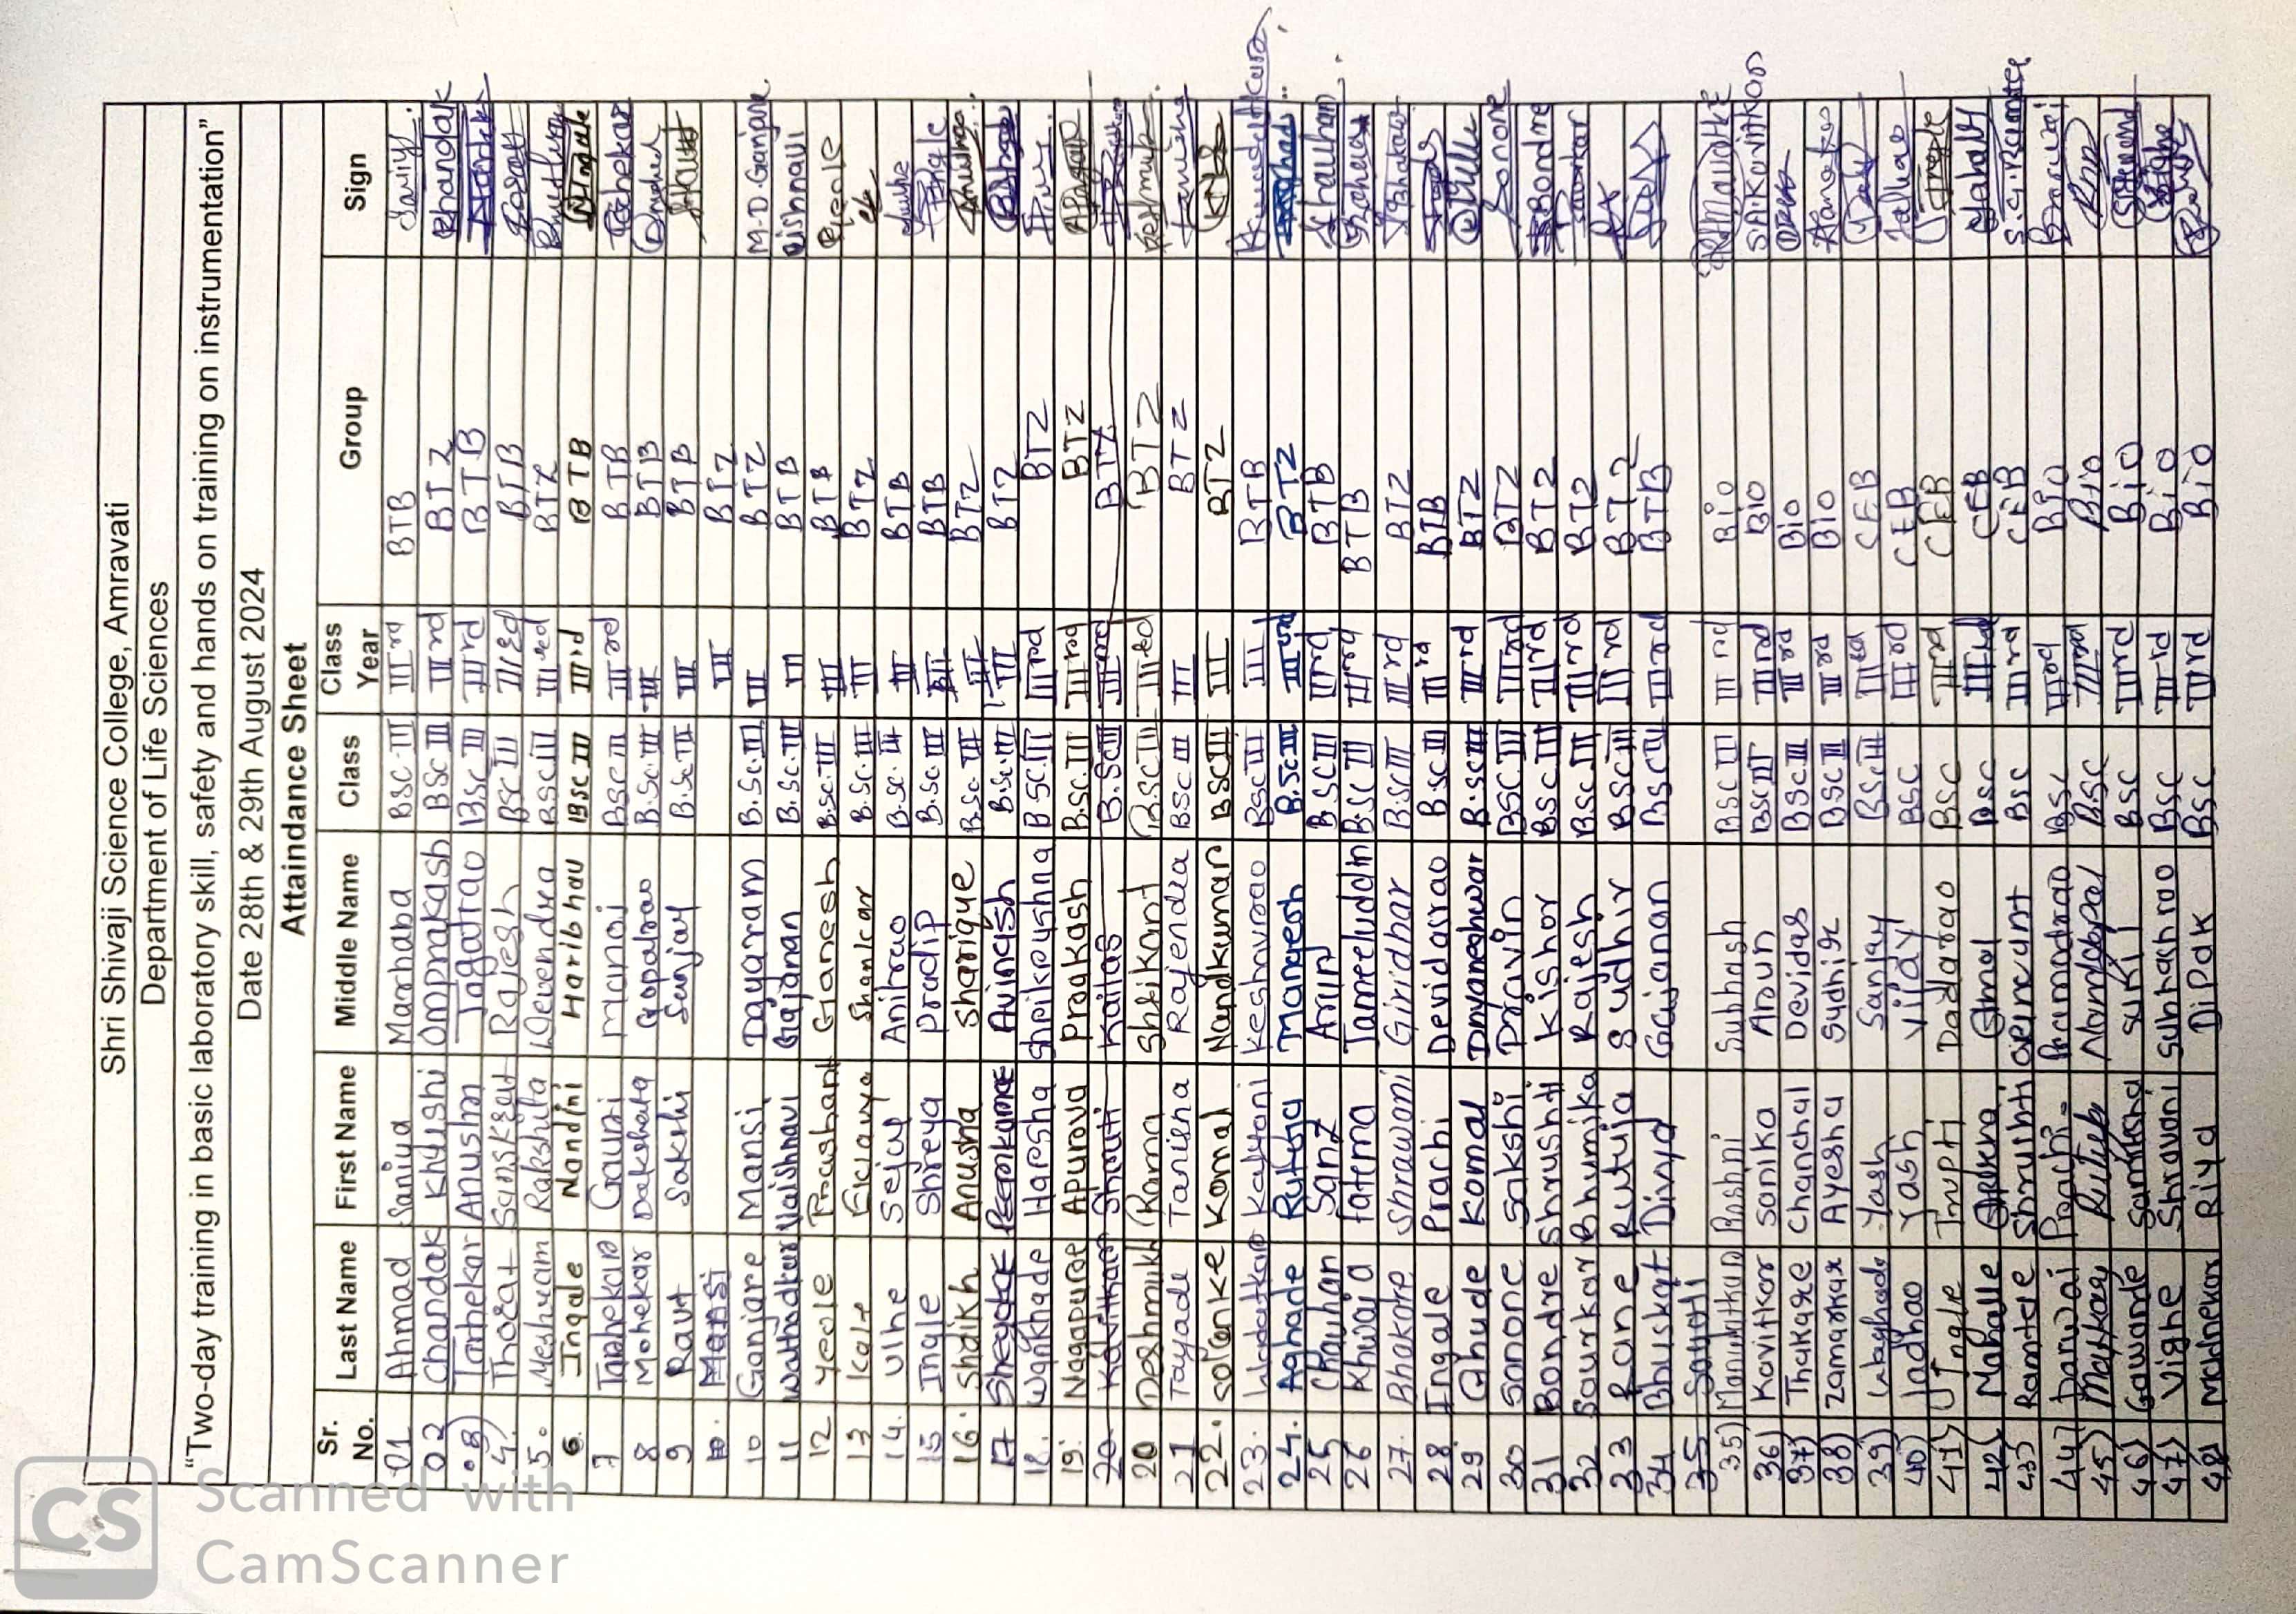 Shri Shivaji Science College, Amravati
Department of Life Sciences
“Two-day training in basic laboratory skill, safety and hands on training on instrumentation”
Date 28th & 29th August 2024
Attaindance Sheet
Sr. No. Last Name First Name Middle Name Class Class Year Group Sign
01 Ahmad Saniya Marhaba BSC-III IIIrd BTB
02 Chandak Khushi Omprakash BSc III IIIrd BTZ Chandak
03) Tarhekar Anushra Jagatrao BSc III IIIrd BTB
4) Thorat Sanskruti Rajesh BSC III IIIrd BTB Thorat
5. Meshram Rakshita Devendra BSC III IIIrd BTZ
6. Ingale Nandini Haribhau BSC III IIIrd BTB N.Ingale
7 Tarhekar Gauri Manoj BSC III IIIrd BTB Tarhekar
8 Mohekar Dakshata Gopalrao B.Sc.III III BTB
9 Raut Sakshi Sanjay B.Sc III III BTB
10. Mansi III BTZ
10 Ganjare Mansi Dayaram B.Sc.III III BTZ M.D.Ganjare
11 Wathodkar Vaishnavi Gajanan B.Sc.III III BTB Vaishnavi
12 Yeole Prashant Ganesh B.sc.III III BTB Yeole
13 Kale Shankar B.Sc.III III BTZ
14. Ulhe Sejal Anilrao B.Sc.III III BTB
15 Ingle Shreya Pradip B.Sc III III BTB Ingle
16. Shaikh Anusha Sharique B.Sc. III III BTZ
17 Avinash B.Sc.III III BTZ
18. Wankhade Harsha Shrikrushna BSC.III IIIrd BTZ
19. Nagapure Apurova Prakash B.SC.III IIIrd BTZ
20. Shruti Kailas B.Sc III IIIrd BTZ
20 Deshmukh Rama Shrikant B.SC III IIIrd BTZ Deshmukh
21 Tayade Tanisha Rajendra BSC III III BTZ Tanisha
22. Solanke Komal Nandkumar BSC III III BTZ
23. Kalyani Keshavrao BSC III III BTB
24. Aghade Rutuja Mangesh B.Sc III IIIrd BTZ
25 Chauhan Sanz Arun B.SC III IIIrd BTB Chauhan
26 Khwaja Fatema Jameeluddin B.SC III IIIrd BTB
27. Bhakare Shrawani Giridhar B.SC III IIIrd BTZ Bhakare
28 Ingale Prachi Devidasrao B.SC III IIIrd BTB
29. Ghude Komal Dnyaneshwar B.SC III IIIrd BTZ
30 Sonone Sakshi Pravin BSC.III IIIrd BTZ Sonone
31 Bondre Shrushti Kishor BSC III IIIrd BTZ Bondre
32 Saurkar Bhumika Rajesh B.SC III IIIrd BTZ Saurkar
33 Rane Rutuja Sudhir BSC III IIIrd BTZ
34 Bhuskat Divya Gajanan BSC III IIIrd BTB
35
35) Roshni Subhash BSC III IIIrd Bio
36) Kavitkar Sanika Arun BSC III IIIrd Bio S.A.Kavitkar
37) Thakare Chanchal Devidas BSC III IIIrd Bio
38) Zamarkar Ayesha Sudhir BSC III IIIrd Bio
39) Waghade Yash Sanjay BSC III IIIrd CEB
40) Jadhao Yash Vijay BSC IIIrd CEB Jadhao
41) Ingle Trupti Dadarao BSC IIIrd CEB Ingle
42) Mahalle BSC IIIrd CEB Mahalle
43) Ramteke Shrushti BSC IIIrd CEB
44) Darwai Prachi Pramodrao BSC IIIrd Bio Darwai
45) Rutik Nandgopal BSC IIIrd Bio
46) Gawande Samiksha Sunil BSC IIIrd Bio
47) Vighe Shravani Subhashrao BSC IIIrd Bio Vighe
48) Riya Dipak BSC IIIrd Bio
CS Scanned with
CamScanner